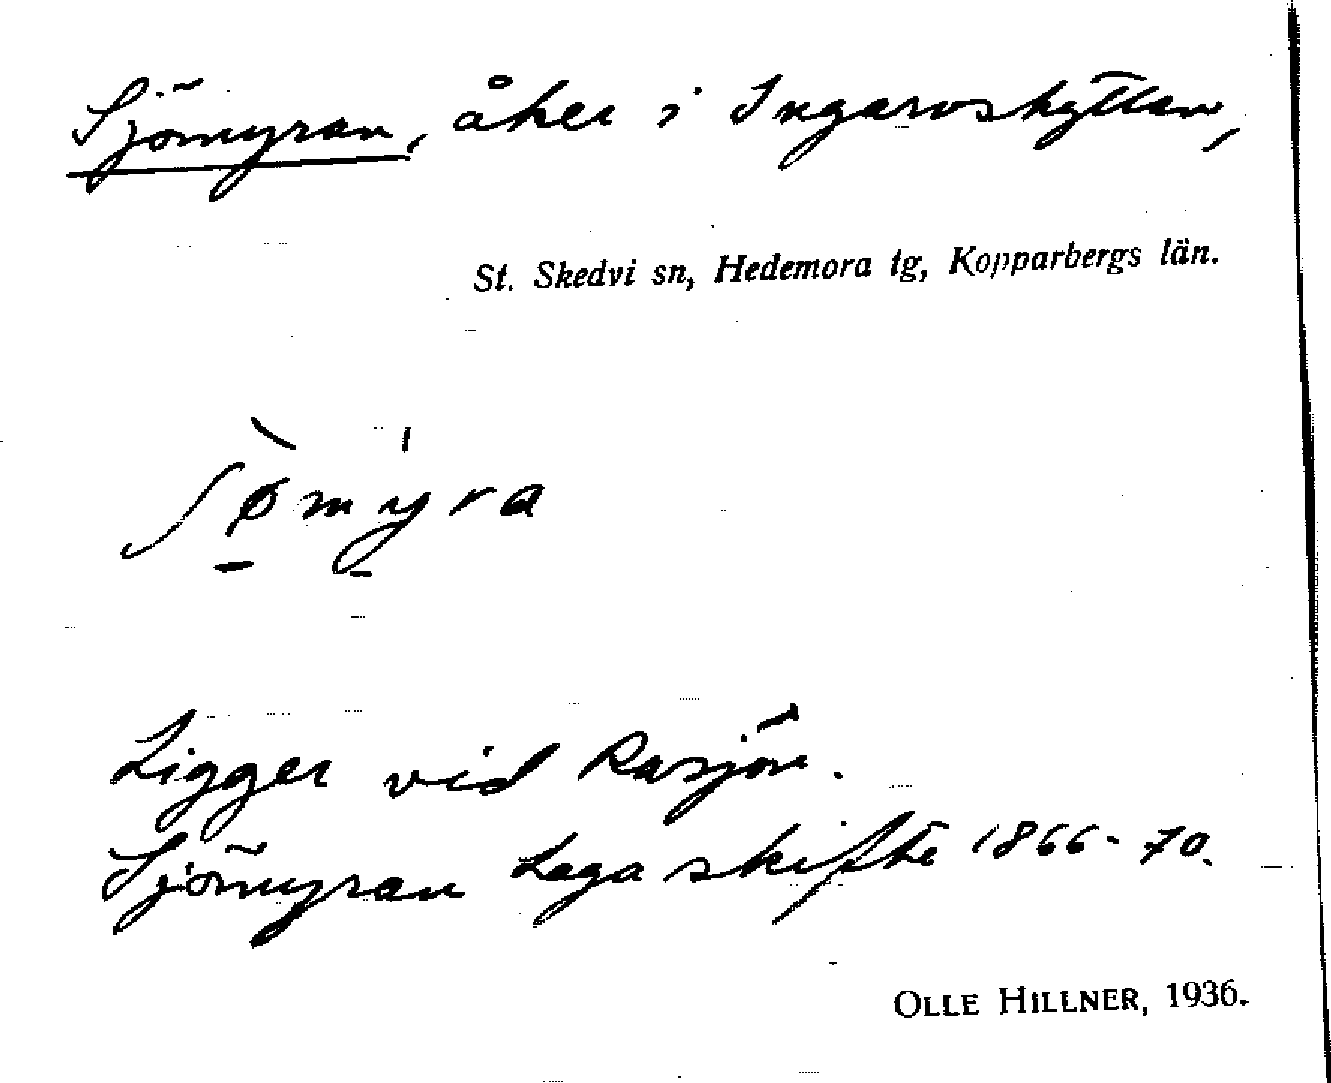 Sjömyran, åker i Ingarvshyttan,
St. Skedvi sn, Hedemora tg, Kopparbergs län.
ʃø̠̀mý̠ra
Ligger vid Rasjön.
Sjömyran Laga skifte 1866-70.
OLLE HILLNER, 1936.